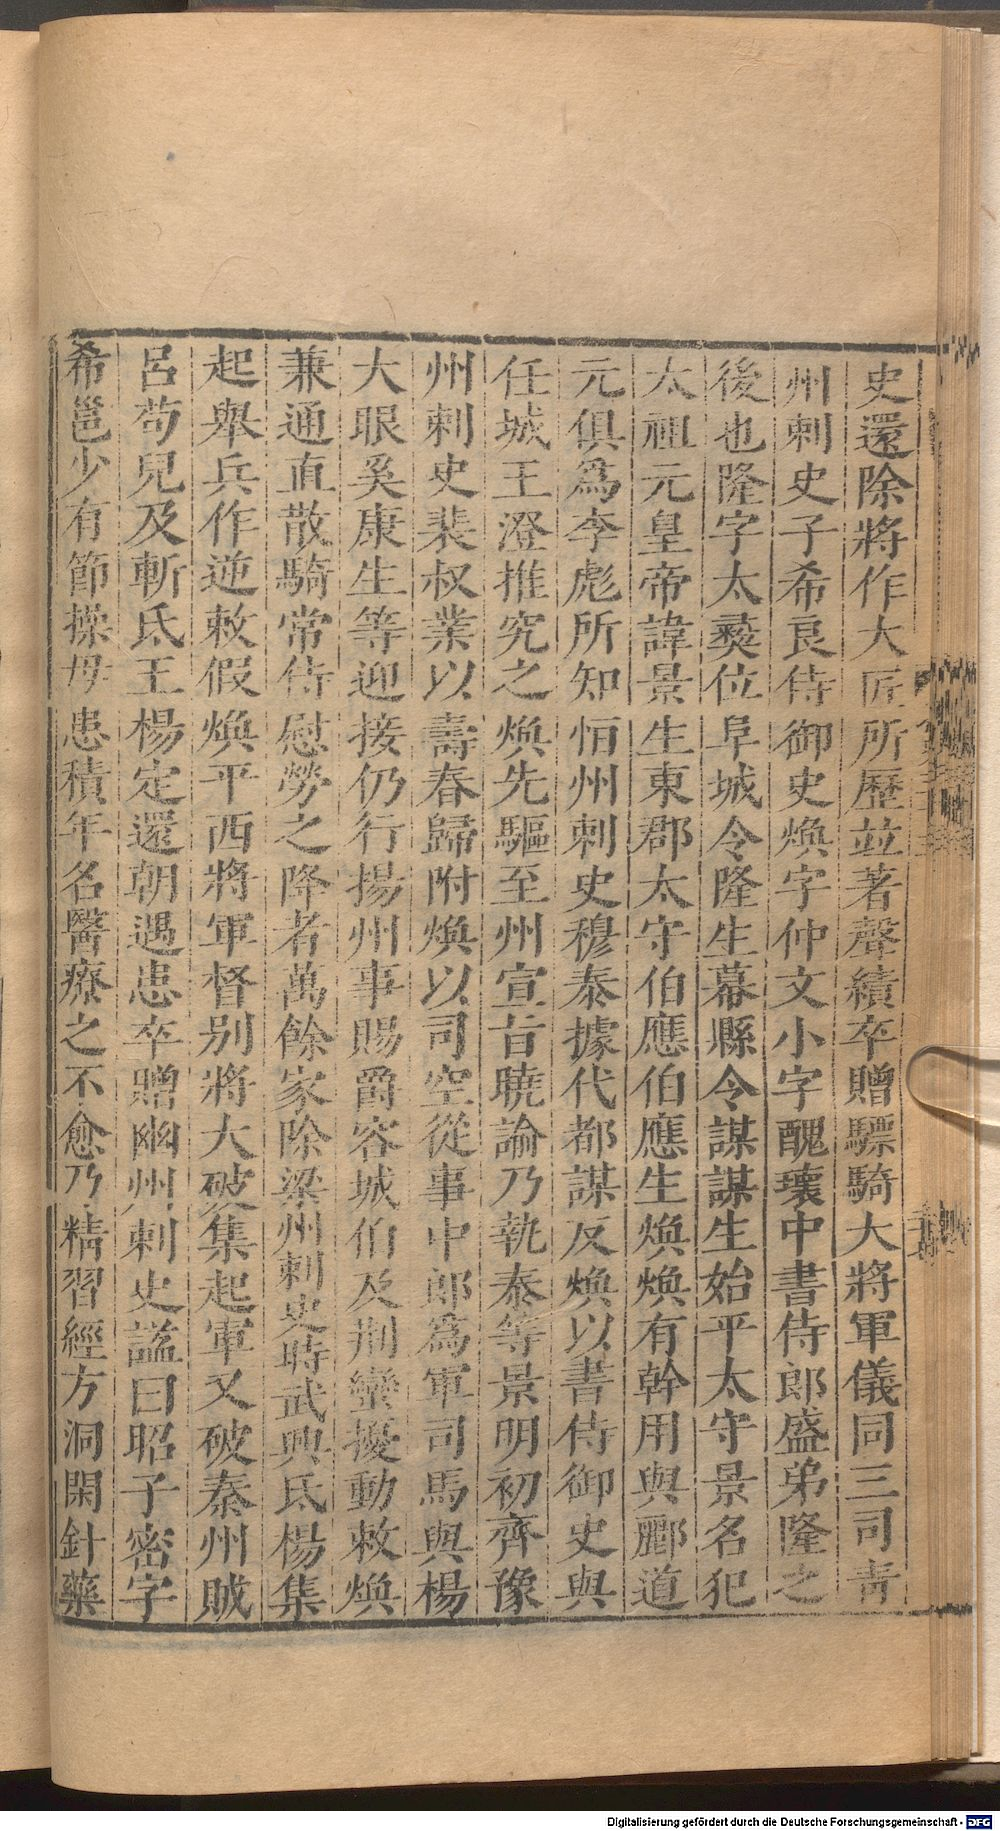 史還除將作大匠所歷並著聲績卒贈驃騎大將軍儀同三司靑
州刺史子希良侍御史煥字仲文小字醜瓌中書侍郎盛弟隆之
後也隆字太彛位阜城令隆生幕縣令謀謀生始平太守景名犯
太祖元皇帝諱景生東郡太守伯應伯應生煥煥有幹用與酈道
元俱爲李彪所知恒州刺史穆泰據代都謀反煥以書侍御史與
任城王澄推究之煥先驅至州宣旨曉諭乃執泰等景明初齊豫
州刺史裴叔業以壽春歸附煥以司空從事中郎爲軍司馬與楊
大眼奚康生等迎接仍行揚州事賜爵容城伯及荆蠻擾動敕煥
兼通直散騎常侍慰勞之降者萬餘家除梁州刺史時武興氐楊集
起舉兵作逆敕假煥平西將軍督別將大破集起軍又破秦州賊
呂苟兒及斬氐王楊定還朝遇患卒贈幽州刺史謚曰昭子密字
希邕少有節操母患積年名醫療之不愈乃精習經方洞閑針藥
Digitalisierung gefördert durch die Deutsche Forschungsgemeinschaft - DFG